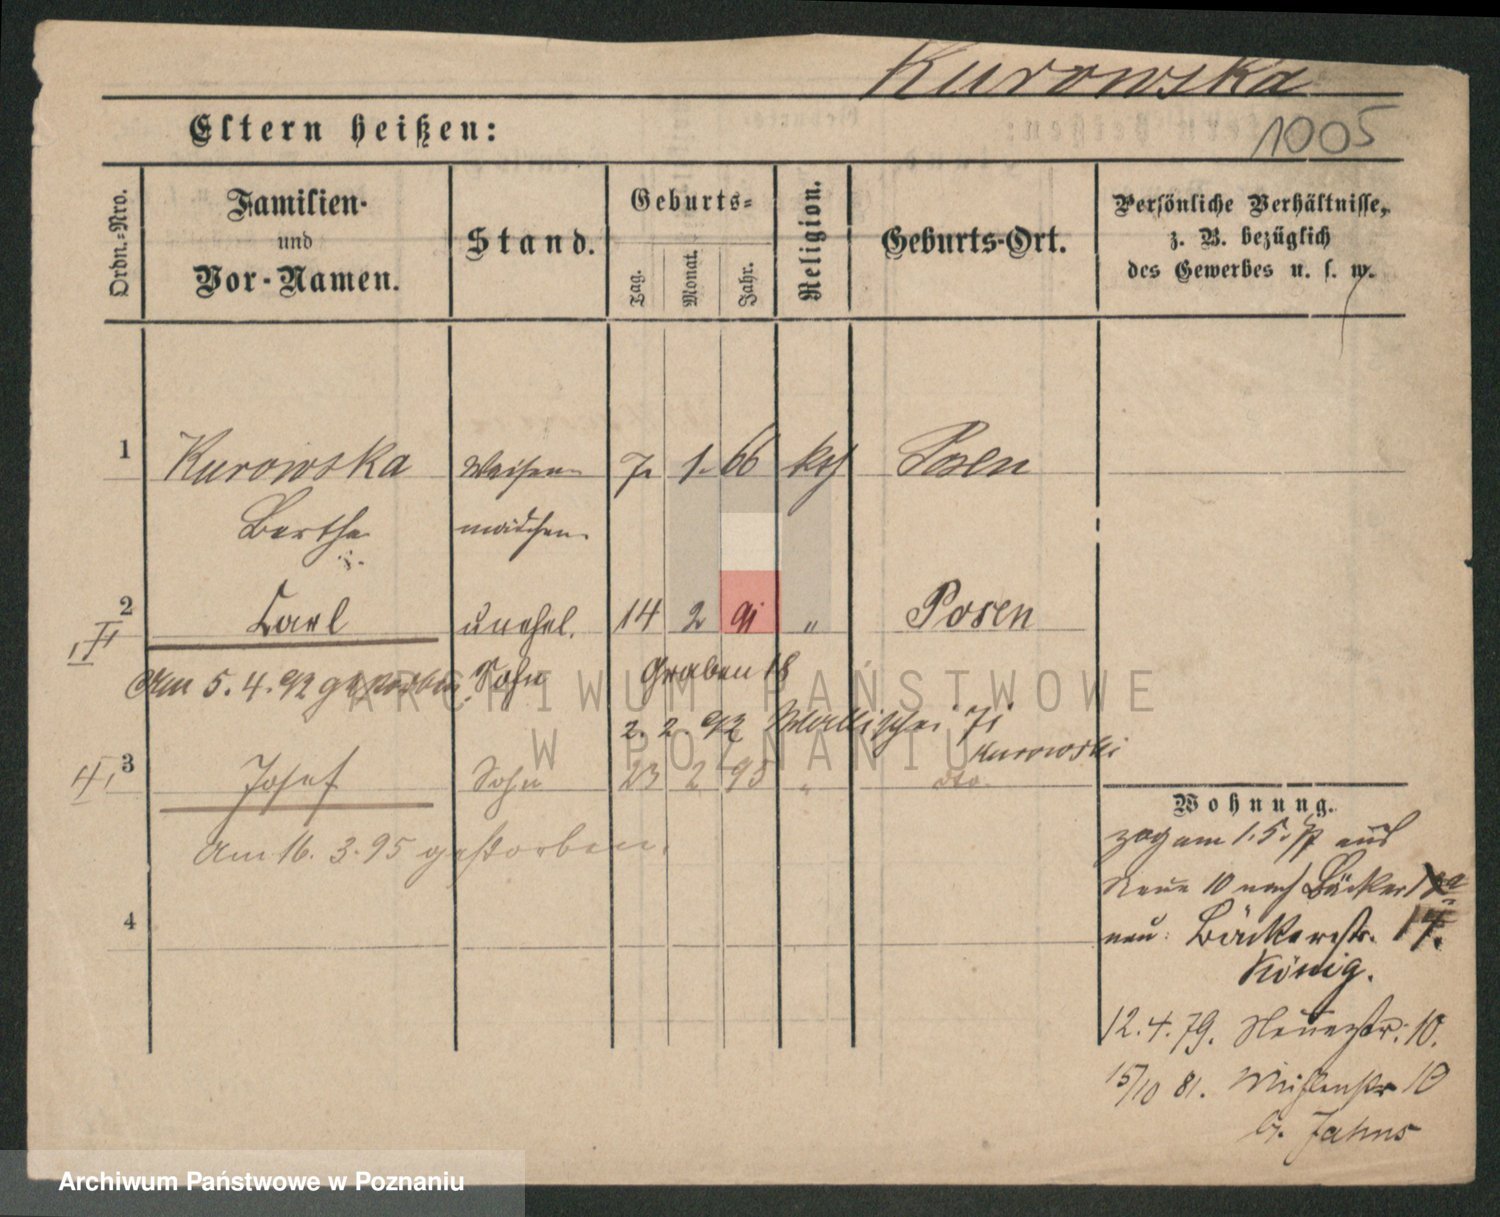 Kurowska
Eltern heißen:
1005
Ordn.-Nro.
Familien-
und
Vor-Namen.
Stand.
Geburts-
Tag. Monat. Jahr.
Religion.
Geburts-Ort.
Persönliche Verhältnisse,
z. B. bezüglich
des Gewerbes u. s. w.
1 Kurowska Waisen- 7. 1. 66 kth Posen
Bertha mädchen
2 Carl unehel. 14 2 91 " Posen
II
Am 5.4.92 gestorben. Sohn Graben 18
2. 2. 92 Wallischei 71
Kurowski
3 Josef Sohn 23 2 95 " dto.
II,
Am 16. 3. 95 gestorben.
4
Wohnung.
zog am 1.5. aus
Neue 10 nach Bäcker
neu: Bäckerstr. 17.
König.
12.4.79. Neuestr. 10.
15/10 81. Mühlenstr 10
b. Jahns
ARCHIWUM PAŃSTWOWE
W POZNANIU
Archiwum Państwowe w Poznaniu